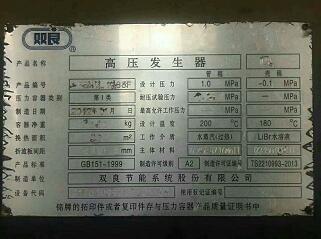 双良®
高压发生器
产品名称 管程 壳程
产品编号 设计压力 1.0 MPa -0.1 MPa
压力容器类别 第Ⅰ类 耐压试验压力 MPa MPa
制造日期 最高允许工作压力 MPa MPa
设计温度 200 ℃ 180 ℃
换热面积 工作介质 水蒸汽(过热) LiBr水溶液
折流板间距 主体材料
产品标准 GB151-1999 制造许可级别 A2 制造许可证编号 TS2210993-2013
制造单位 双良节能系统股份有限公司
设备代码 使用登记证编号
铭牌的拓印件或者复印件存与压力容器产品质量证明书中